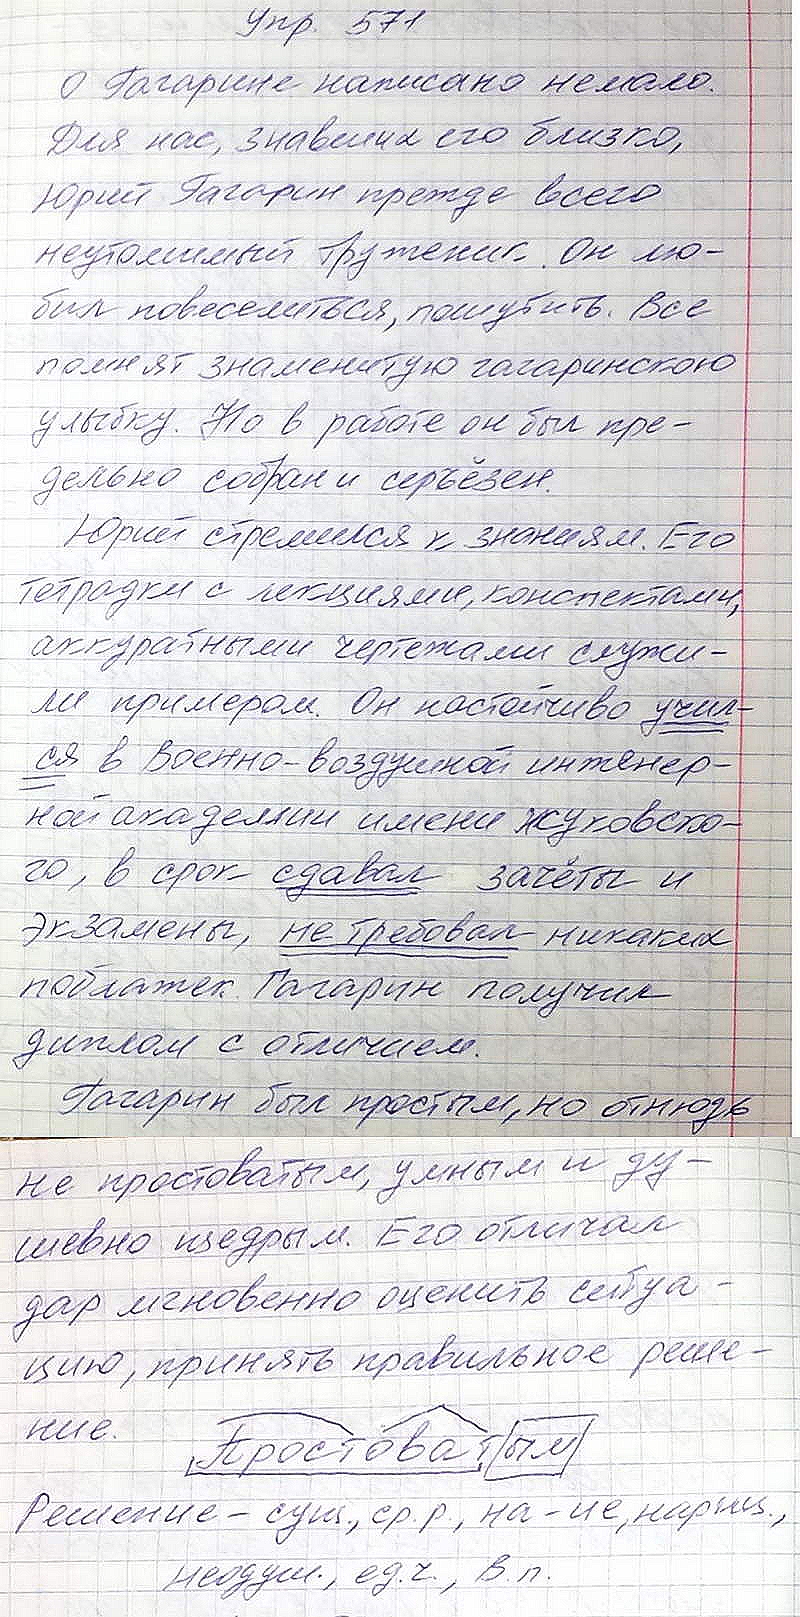 Упр. 571
О Гагарине написано немало.
Для нас, знавших его близко,
Юрий Гагарин прежде всего
неутомимый труженик. Он лю-
бил повеселиться, пошутить. Все
помнят знаменитую гагаринскою
улыбку. Но в работе он был пре-
дельно собран и серьёзен.
Юрий стремился к знаниям. Его
тетрадки с лекциями, конспектами,
аккуратными чертежами служи-
ли примером. Он настойчиво учил-
ся в Военно-воздушной инженер-
ной академии имени Жуковско-
го, в срок сдавал зачёты и
экзамены, не требовал никаких
поблажек. Гагарин получил
диплом с отличием.
Гагарин был простым, но отнюдь
не простоватым, умным и ду-
шевно щедрым. Его отличал
дар мгновенно оценить ситуа-
цию, принять правильное реше-
ние.
Простоватым
Решение - сущ., ср.р., на -ие, нариц.,
неодуш., ед.ч., В.п.